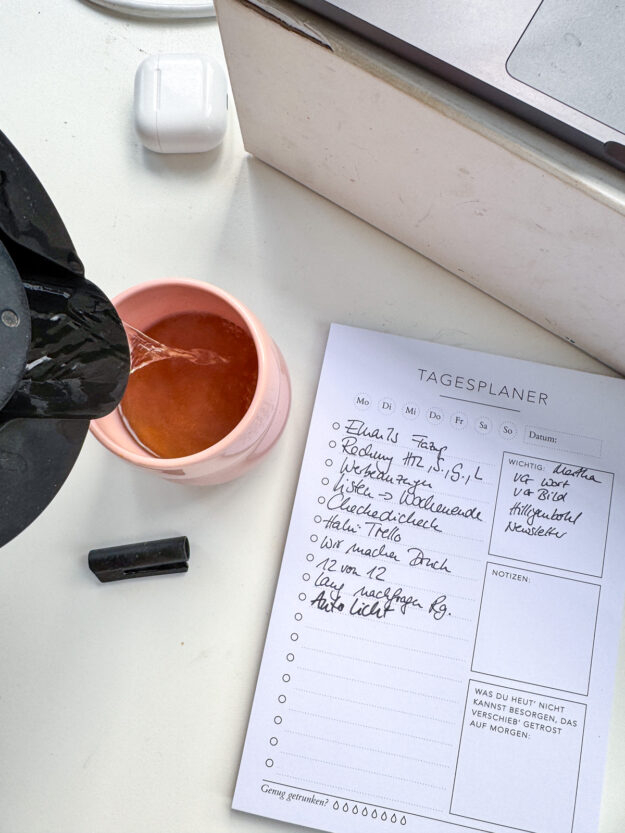 TAGESPLANER
Mo Di Mi Do Fr Sa So Datum:
Emails Fazuy
Rechnung HZ, S, G, L
Werbeanzeigen
Listen → Wochenende
Checkedicheck
Trello
Wir machen Druck
12 von 12
lang nachfragen Rg.
Auto Licht
WICHTIG: Martha
VG Wort
VG Bild
Newsletter
NOTIZEN:
WAS DU HEUT' NICHT
KANNST BESORGEN, DAS
VERSCHIEB' GETROST
AUF MORGEN:
Genug getrunken?